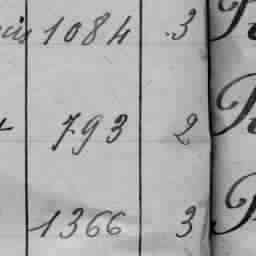 1084 3
793 2
1366 3